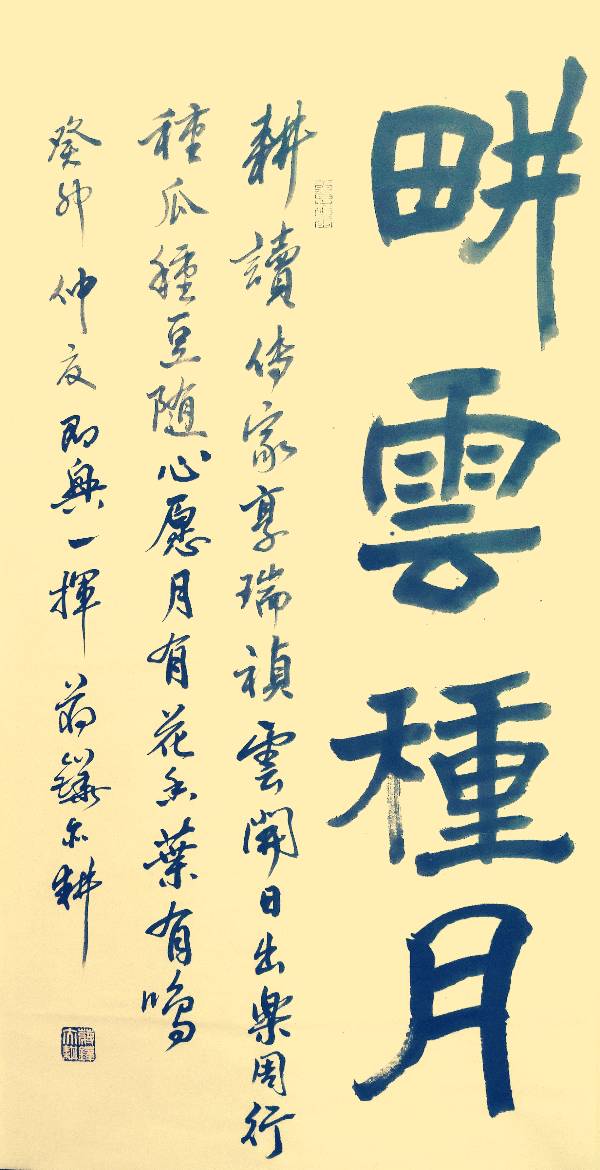 畊雲種月
耕讀傳家享瑞禎雲開日出樂周行
種瓜種豆随心愿月有花香葉有鳴
癸卯仲夏即興一揮耕